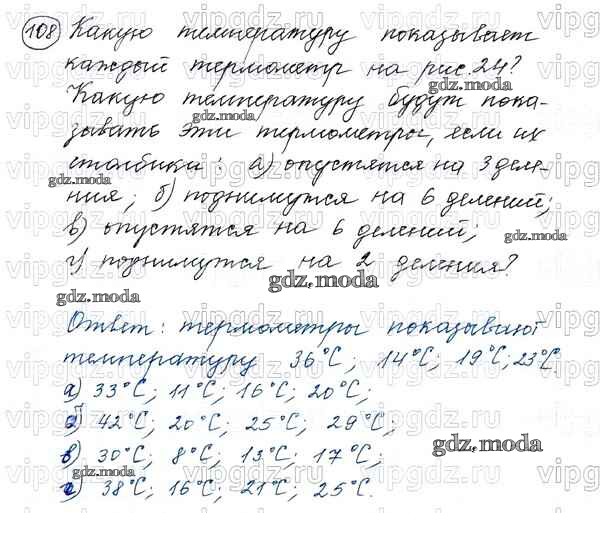 108 Какую температуру показывает
каждый термометр на рис. 24?
Какую температуру будут пока-
зывать эти термометры, если их
столбики: а) опустятся на 3 деле-
ния; б) поднимутся на 6 делений;
в) опустятся на 6 делений;
г) поднимутся на 2 деления?
Ответ: термометры показывают
температуру 36°С; 14°С; 19°С; 23°С.
а) 33°С; 11°С; 16°С; 20°С;
б) 42°С; 20°С; 25°С; 29°С;
в) 30°С; 8°С; 13°С; 17°С;
г) 38°С; 16°С; 21°С; 25°С.
gdz.moda
vipgdz.ru